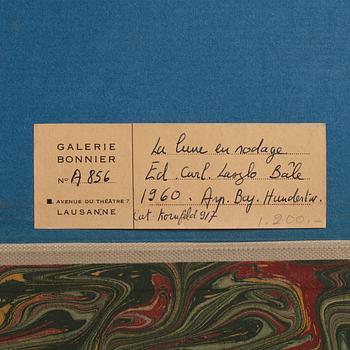 GALERIE
BONNIER
No A 856
■. AVENUE DU THÉÂTRE 7
LAUSANNE
La lune en rodage
Ed. Carl. Laszlo Bâle
1960. Arp. Bay. Hundertw.
Cat. Kornfeld 917
1.200.-